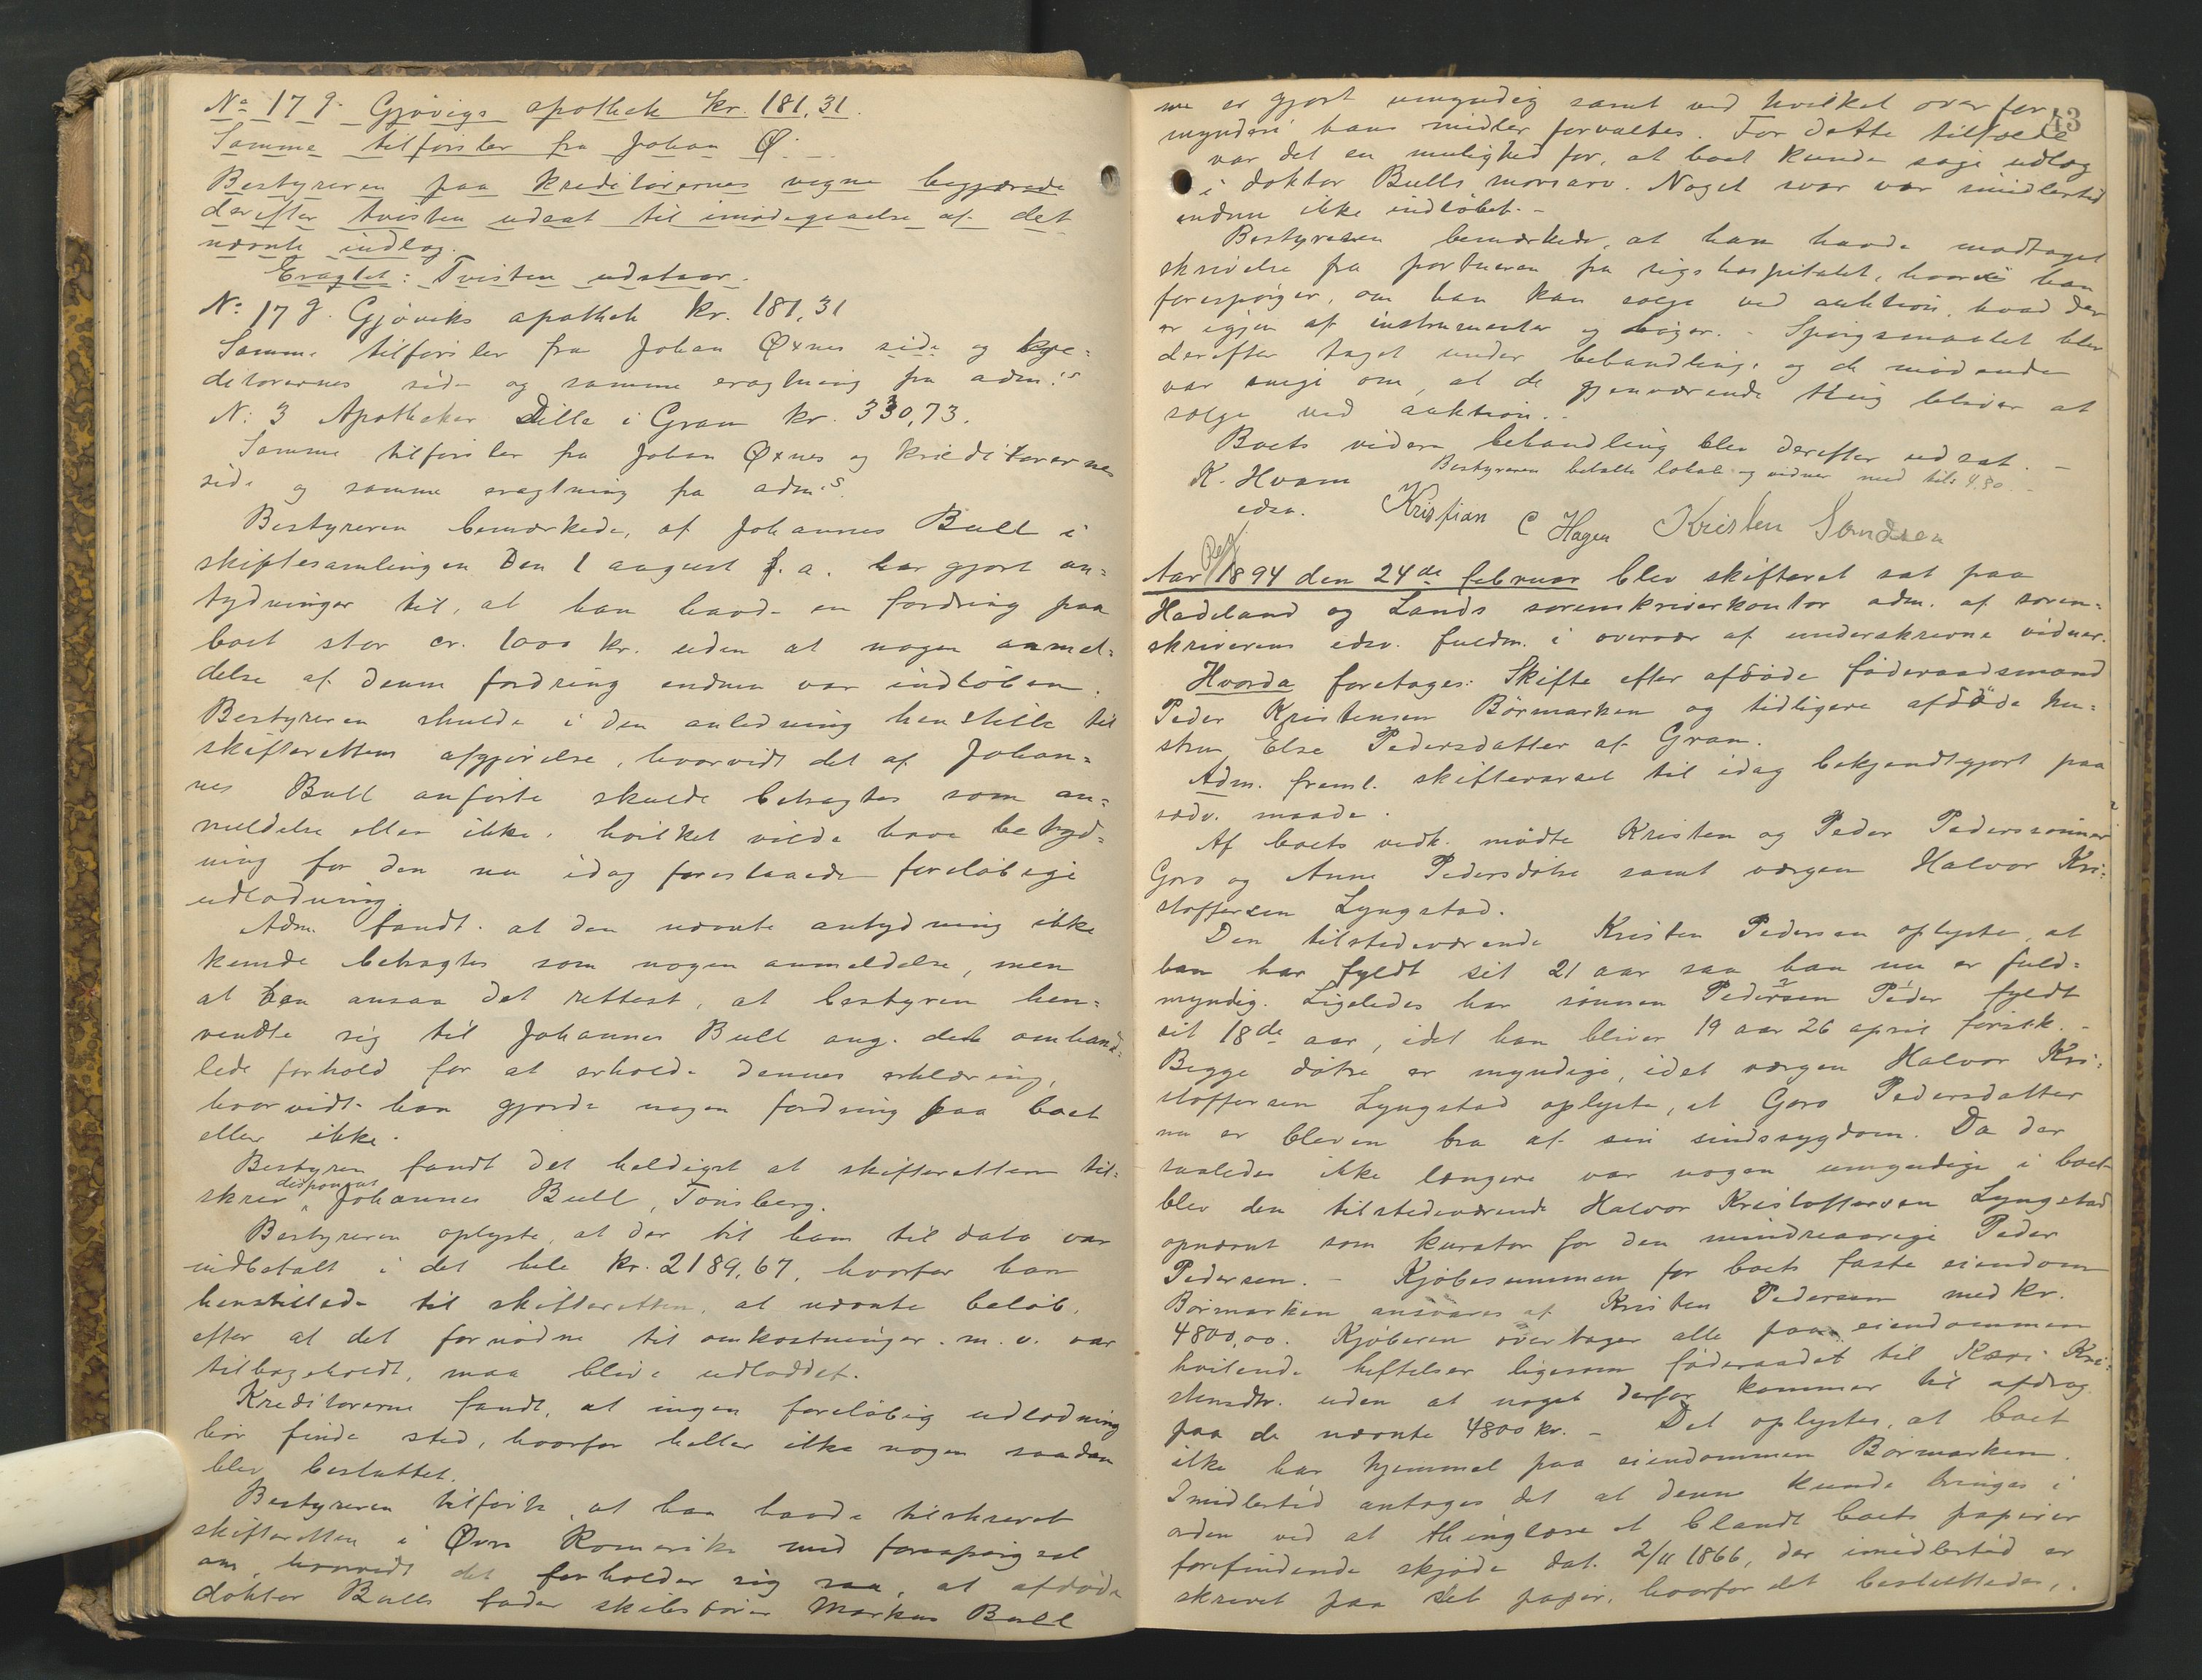 No 17 g. Gjøvigs apothek kr. 181,31.
Samme tilførsler fra Johan Ø.
Bestyreren paa kreditorernes vegne begjærede
derefter tvisten udsat til imødegaaelse af det
nævnte indlæg.
Eragtet: Tvisten udstaar.
No 17 g. Gjøviks apothek kr. 181,31
Samme tilførsler fra Johan Øxnes side og kre=
ditorernes side og samme eragtning fra adm.s
N: 3 Apotheker Dille i Gran kr. 330,73.
Samme tilførsler fra Johan Øxnes og kreditorernes
side og samme eragtning fra adm.s
Bestyreren bemærkede, at Johannes Bull i
skiftesamlingen den 1 august f. a. har gjort an=
tydninger til, at han havde en fordring paa
boet stor cr. 1000 kr. uden at nogen anmel=
delse af denne fordring endnu var indløben.
Bestyreren skulde i den anledning henstille til
skifterettens afgjørelse, hvorvidt det af Johan=
nes Bull anførte skulde betragtes som an=
meldelse eller ikke, hvilket vilde have betyd=
ning for den nu idag forestaaende foreløbige
udlodning.
Adm. fandt at den nævnte antydning ikke
kunde betragtes som nogen anmeldelse, men
at han ansaa det rettest, at bestyren hen=
vendte sig til Johannes Bull ang. dette omhand=
lede forhold for at erholde dennes erklæring,
hvorvidt han gjorde nogen fordring paa boet
eller ikke.
Bestyren fandt det heldigst at skifteretten til=
skrev disponent Johannes Bull, Tønsberg.
Bestyreren oplyste, at der til ham til dato var
indbetalt i det hele kr. 2189,67, hvorfor han
henstillede til skifteretten, at nævnte beløb,
efter at det fornødne til omkostninger m. v. var
tilbageholdt, maa blive udloddet.
Kreditorerne fandt, at ingen foreløbig udlodning
bør finde sted, hvorfor heller ikke nogen saadan
blev besluttet.
Bestyreren tilførte, at han havde tilskrevet
skifteretten i Øvre Romerike med forespørgsel
om, hvorvidt det forholder sig saa, at afdøde
doktor Bulls fader skibsfører Markus Bull
43
nu er gjort umyndig samt ved hvilket overfor
mynderi hans midler forvaltes. For dette tilfælde
var det en mulighed for, at boet kunde søge udlæg
i doktor Bulls morsarv. Noget svar var imidlertid
endnu ikke indløbet. -
Bestyreren bemærkede, at han havde modtaget
skrivelse fra portneren fra rigshospitalet, hvori han
forespørger, om han kan sælge ved auktion, hvad der
er igjen af instrumenter og bøger. - Spørgsmaalet blev
derefter taget under behandling, og de mødende
var enige om, at de gjenværende ting bliver at
sælge ved auktion. -
Boets videre behandling blev derefter udsat. -
Bestyreren betalte lokale og vidner med tils. 4.80. -
K. Hvam
edsv. Kristian C Hagen Kristen Sandsen
Reg.
Aar 1894 den 24de februar blev skifteret sat paa
Hadeland og Lands sorenskriverkontor adm. af soren=
skriverens edsv. fuldm. i overvær af underskrevne vidner.
Hvorda foretoges: Skifte efter afdøde føderaadsmand
Peder Kristensen Børmarken og tidligere afdøde hu=
stru Else Pedersdatter af Gran.
Adm. freml. skiftevarsel til idag bekjendtgjort paa
sædv. maade.
Af boets vedk. mødte Kristen og Peder Pederssønner
Goro og Anne Pedersdøtre samt værgen Halvor Kri=
stoffersen Lyngstad.
Den tilstedeværende Kristen Pedersen oplyste, at
han har fyldt sit 21 aar saa han nu er fuld=
myndig. Ligeledes har sønnen Pedersen Peder fyldt
sit 18de aar, idet han bliver 19 aar 26 april førstk. -
Begge døtre er myndige, idet værgen Halvor Kri=
stoffersen Lyngstad oplyste, at Goro Pedersdatter
nu er bleven bra af sin sindssygdom. Da der
saaledes ikke længere var nogen umyndige i boet
blev den tilstedeværende Halvor Kristoffersen Lyngstad
opnævnt som kurator for den mindreaarige Peder
Pedersen. - Kjøbesummen for boets faste eiendom
Børmarken ansvares af Kristen Pedersen med kr.
4800,00. Kjøberen overtager alle paa eiendommen
hvilende heftelser ligesom føderaadet til Kari Kri=
stensdtr. uden at noget derfor kommer til afdrag
paa de nævnte 4800 kr. - Det oplystes, at boet
ikke har hjemmel paa eiendommen Børmarken.
Imidlertid antages det at denne kunde bringes i
orden ved at thinglæse et blandt boets papirer
forefindende skjøde dat. 2/11 1866, der imidlertid er
skrevet paa slet papir, hvorfor det besluttedes,